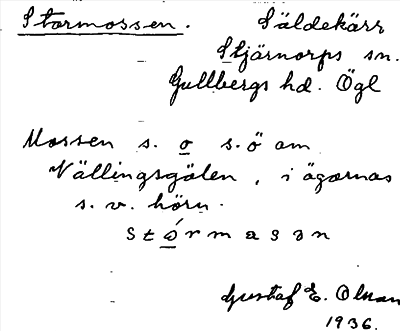 Stormossen. Säldekärr
Stjärnorps sn.
Gullbergs hd. Ögl
Mossen s. o s.ö om
Vällingsgölen, i ägornas
s.v. hörn.
stórmasan
Gustaf E. Olsson
1936.